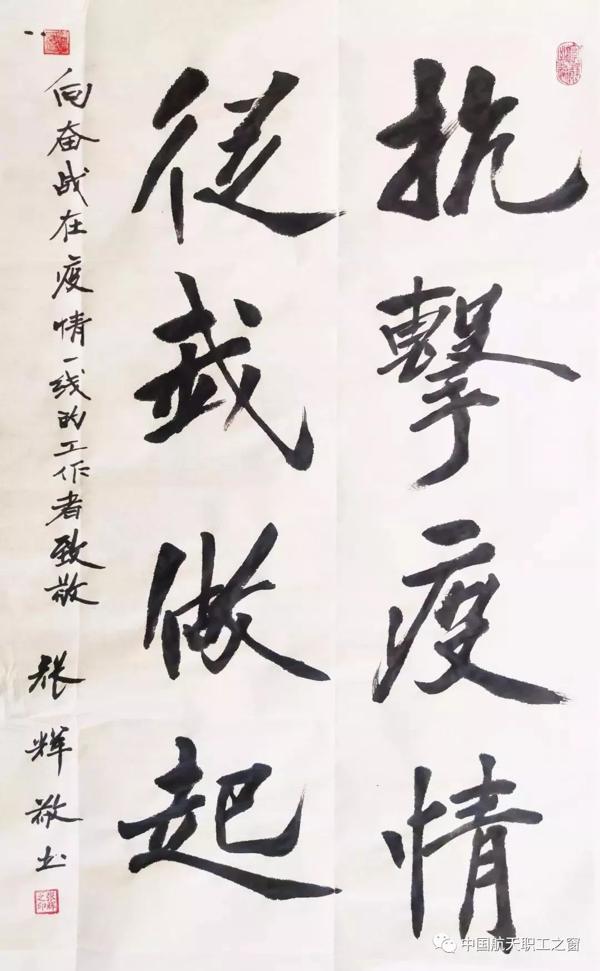 抗擊疫情
從我做起
向奋战在疫情一线的工作者致敬
張輝敬书
張輝之印
中国航天职工之窗